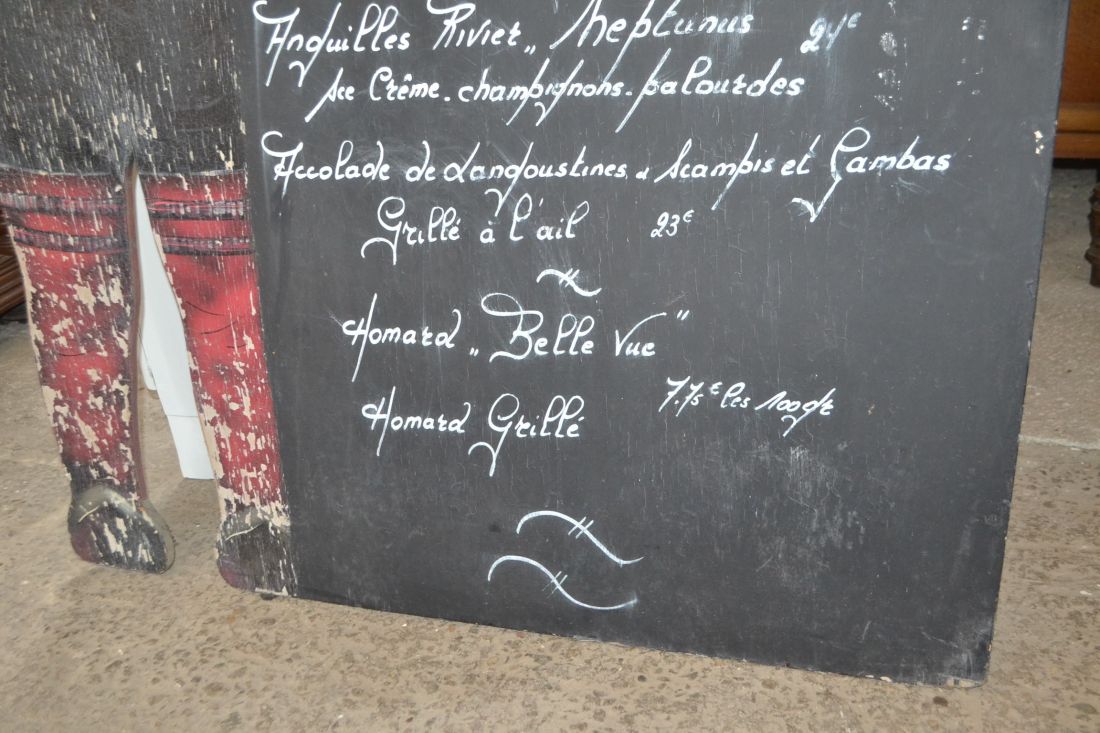 Anguilles Rivier „ Neptunus 24€
sce Crème - champignons - palourdes
Accolade de Langoustines, scampis et Gambas
Grillé à l'ail 23€
Homard „Belle Vue"
7.75€ les 100gr
Homard Grillé